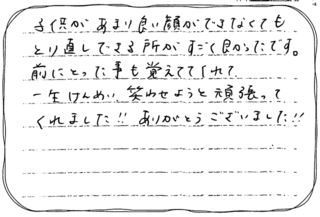 子供があまり良い顔ができなくても
とり直しできる所がすごく良かったです。
前にとった事も覚えててくれて
一生けんめい笑わせようと頑張って
くれました!! ありがとうございました!!